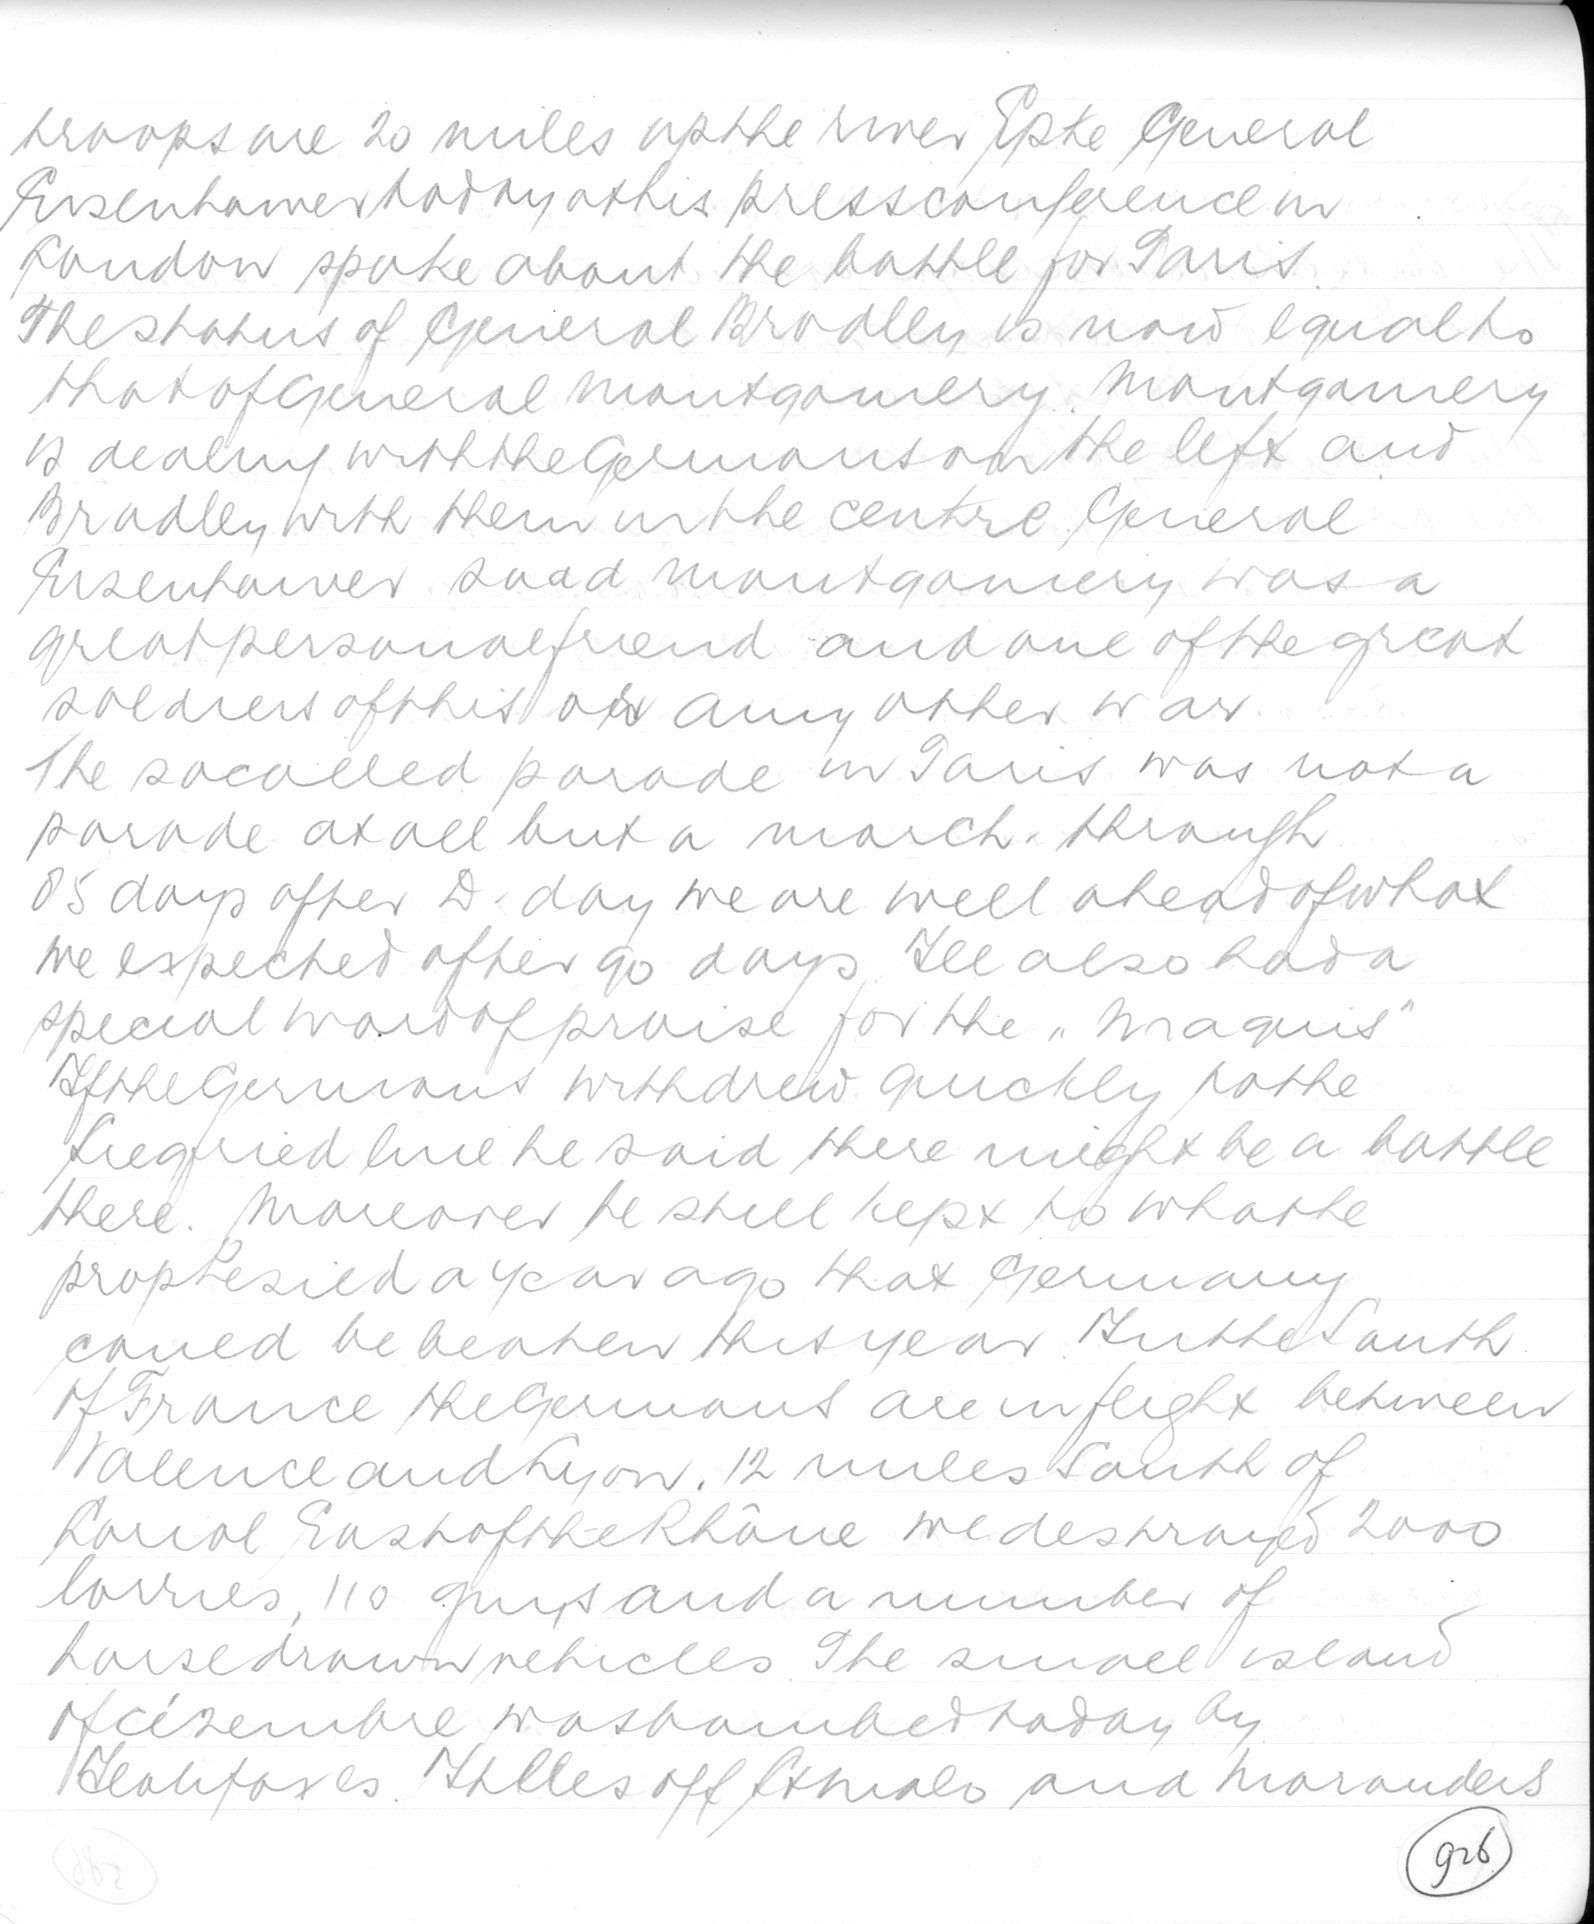 troops are 20 miles up the river Epte General
Eisenhower today at his pressconference in
London spoke about the battle for Paris.
The status of General Bradley is now equal to
that of General Montgomery. Montgomery
is dealing with the Germans on the left and
Bradley with them in the centre. General
Eisenhower said Montgomery was a
great personal friend and one of the great
soldiers of this or any other war.
The socalled parade in Paris was not a
parade at all but a march through
85 days after D-day we are well ahead of what
we expected after 90 days. He also had a
special word of praise for the „Maquis"
If the Germans withdrew quickly to the
Siegfried line he said there might be a battle
there. Moreover he still kept to what he
prophesied a year ago that Germany
could be beaten this year. In the South
of France the Germans are in flight between
Valence and Lyon. 12 miles South of
Loriol East of the Rhône we destroyed 2000
lorries, 110 guns and a number of
horsedrawn vehicles. The small island
of cézembre was bombed today by
Halifaxes. It lies off St Malo and Marauders
926